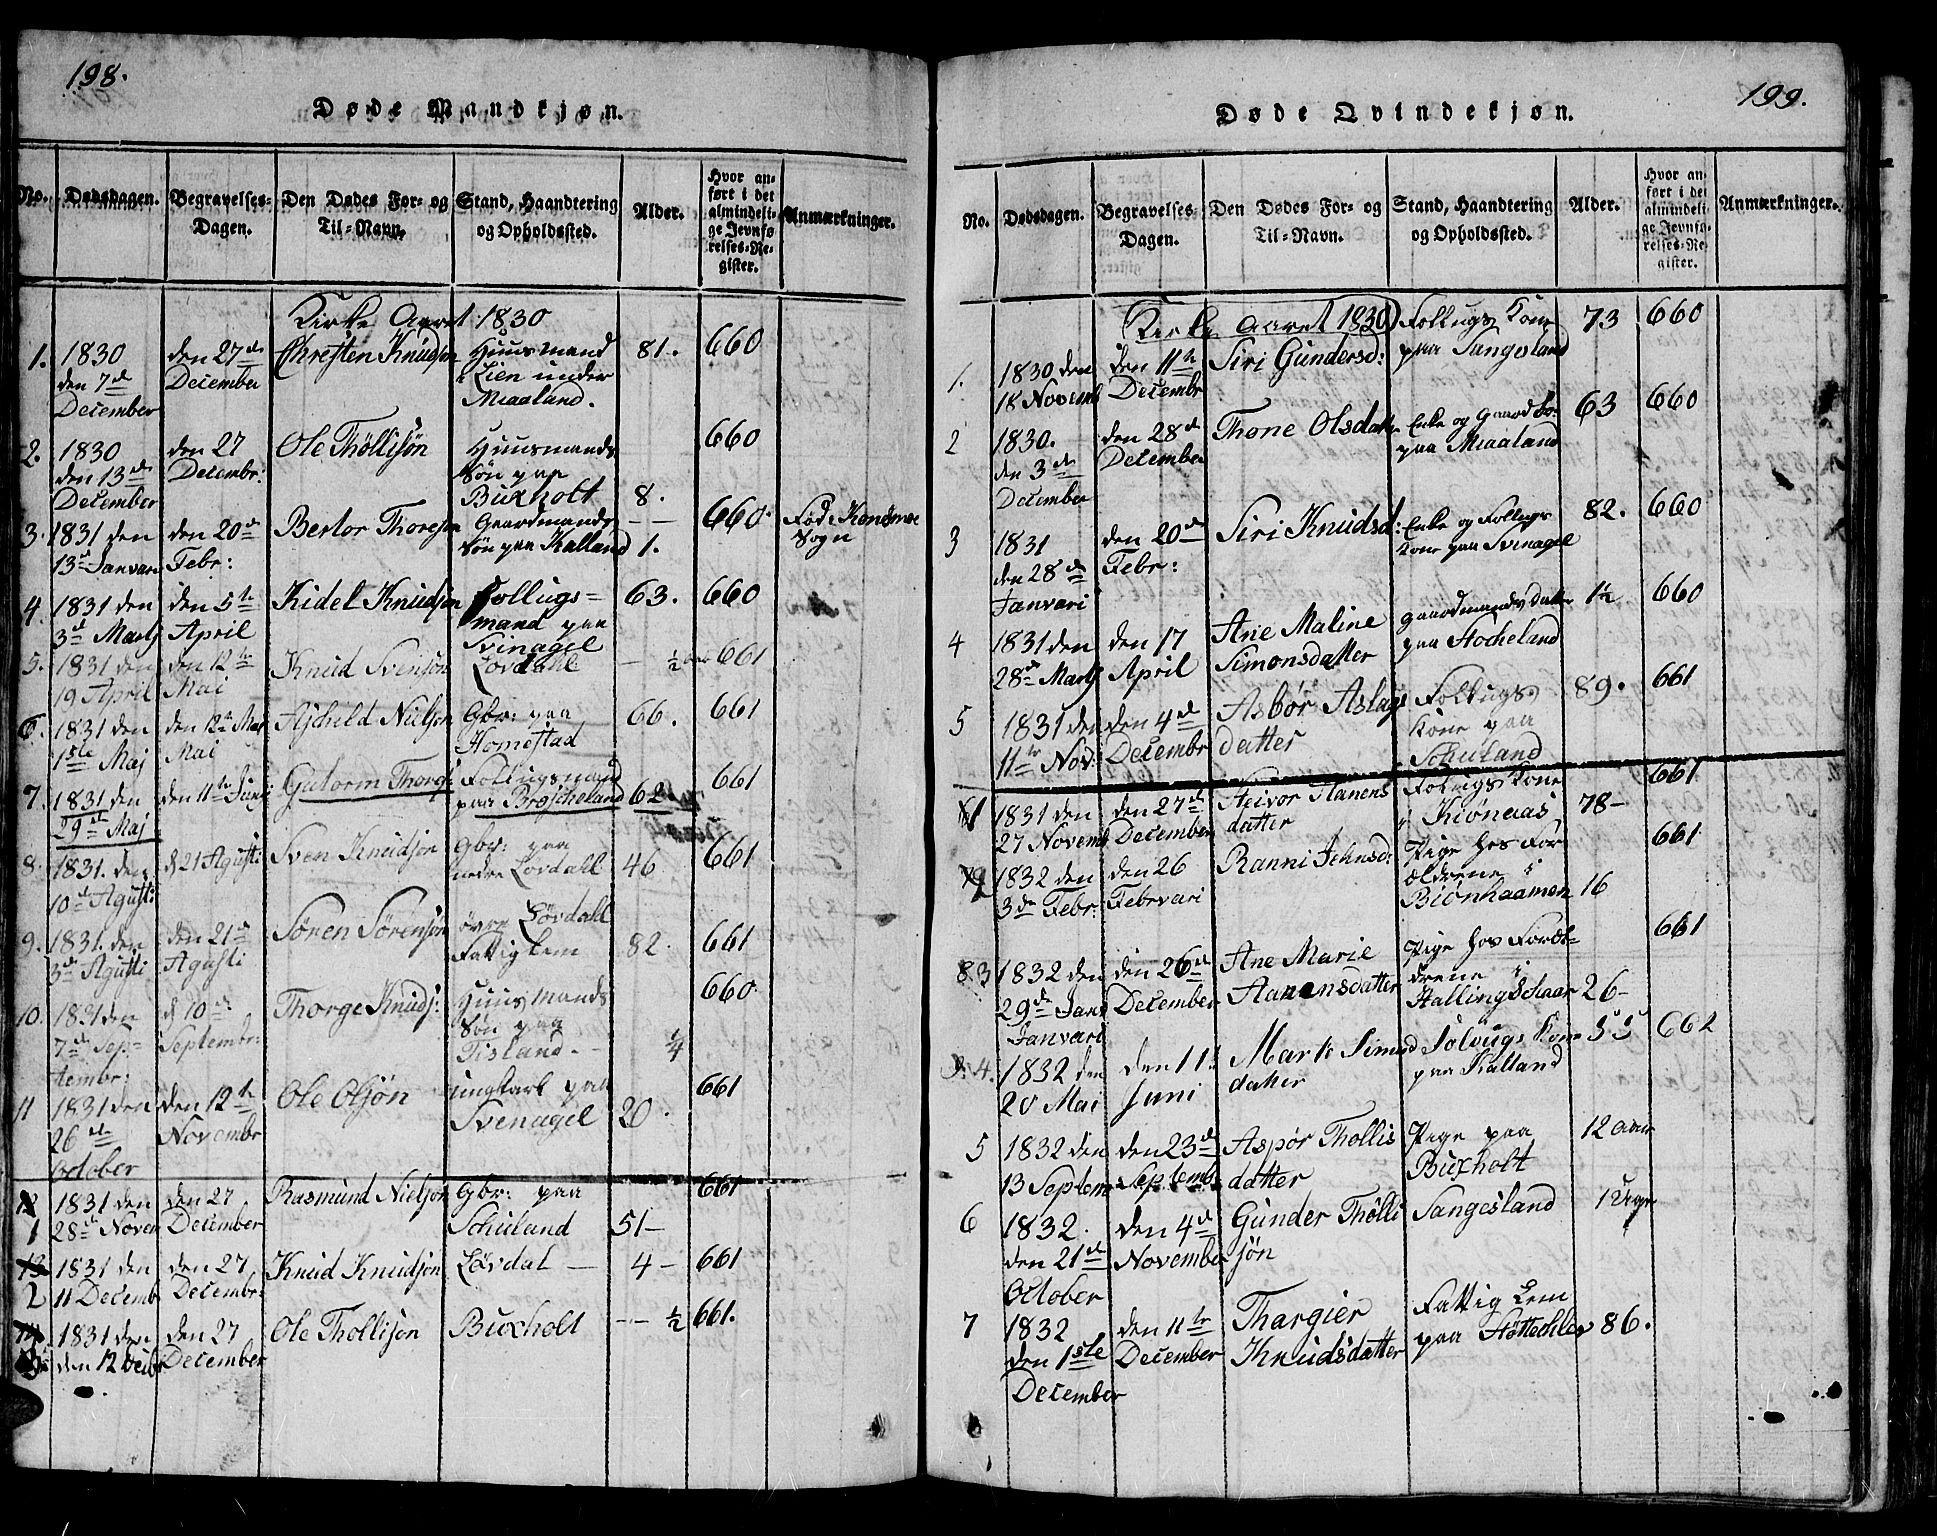 198.
Døde Mandkjøn.
No. Dødsdagen. Begravelses-Dagen. Den Dødes For- og Til-Navn. Stand, Haandtering og Opholdssted. Alder. Hvor anført i det almindelige Jevnførelses-Register. Anmærkninger.
Kirke Aaret 1830
1. 1830 den 7de December den 27de December Christen Knudsøn Huusmand Lien under Miaaland. 81. 660
2. 1830 den 13de December den 27 Decembr: Ole Thøllisøn Huusmands Søn paa Buxholt 8. 660
3. 1831 den 13de Januari den 20de Febr: Bertor Thoresøn Gaardmands Søn paa Kalland 1. 660. Fød i Sogn
4. 1831 den 3de Martj den 5te April Kidel Knudsøn Follugsmand paa Svinagel 63. 660
5. 1831 den 19 April den 12te Mai Knud Svensøn Løvdahl — ½ 661
6. 1831 den 1ste Maj den 12te Mai Mai Ascheld Nielsøn Gbr: paa Homestad 66. 661
7. 1831 den 29de Maj den 11te Junj Gutorm Thorgs: Follugsmand paa Brøscheland 62 661
8. 1831. den 10de Agusti d 21 Agusti Sven Knudsøn Gbr: paa nedre Løvdahl 46 661
9. 1831. den 3de Agusti den 21de Agusti Søren Sørensøn øvre Løvdahl Fattiglem 82. 661
10. 1831 den 7de September: d 10de Septembr: Thorge Knuds: Huusmands Søn paa Tisland. ¼ 660
11 1831 den 26de October den 12te Novembr Ole Olsøn ungkarl paa Svenagel 20. 661
1 1831 den 28de Novem den 27 December Rasmund Nielsøn Gbr: paa Schuland 51— 661
2 1831 den 11 Decemb den 27 Decembr: Knud Knudsøn Løvdal — 4— 661
3 1831 den den 12 Decbr den 27 December Ole Thollisøn Buxholt — ½ 661.
199.
Døde Qvindekjøn.
No. Dødsdagen. Begravelses Dagen. Den Dødes For- og Til-Navn. Stand, Haandtering og Opholdssted. Alder. Hvor anført i det almindelige Jevnførelses-Register. Anmærkninger.
Kirke aaret 1830
1. 1830 den 18 Novemb den 11te Decembr Siri Gundersd: Follugs Kone paa Sangesland 73 660
2 1830. den 3de December den 28de December Thone Olsdatter Enke og Gaardbo: paa Miaaland 63 660
3 1831 den 28de Januari den 20de Febr: Siri Knudsd: Enke og Follugs Kone paa Svinagel 82. 660
4 1831 den 28de Martj den 17 April Ane Maline Simonsdatter gaardmands datter paa Stocheland 1½ 660
5 1831 den 11te Nov: den 4de Decembr Asbør Aslagsdatter Follugs Kone paa Schuland 89. 661
1 1831 den 27 Novemb den 27de December Aanensdatter Follugs Kone i Kiønaas 78— 661
2 1832 den 3de Febr: den 26 Februari Ranni Jehnsd: Pige hos Forældrene i Biønhaamen 16 661
3 1832 den 29de Januari den 26de December Ane Marie Aanensdatter Pige hos Forældrene i Hallingschaar 26— 661
4. 1832 den 20 Mai den 11. Juni Follugs Kone paa Kalland 55 662
5 1832 den 13 Septem den 23de Septemb Aspør Thollisdatter Pige paa Buxholt 12 aar
6 1832. den 21de October den 4de November Gunder Thøllisøn Sangesland 1 Uge
7 1832 den 1ste December den 11te December Thargier Knudsdatter Fattig Lem paa 86.